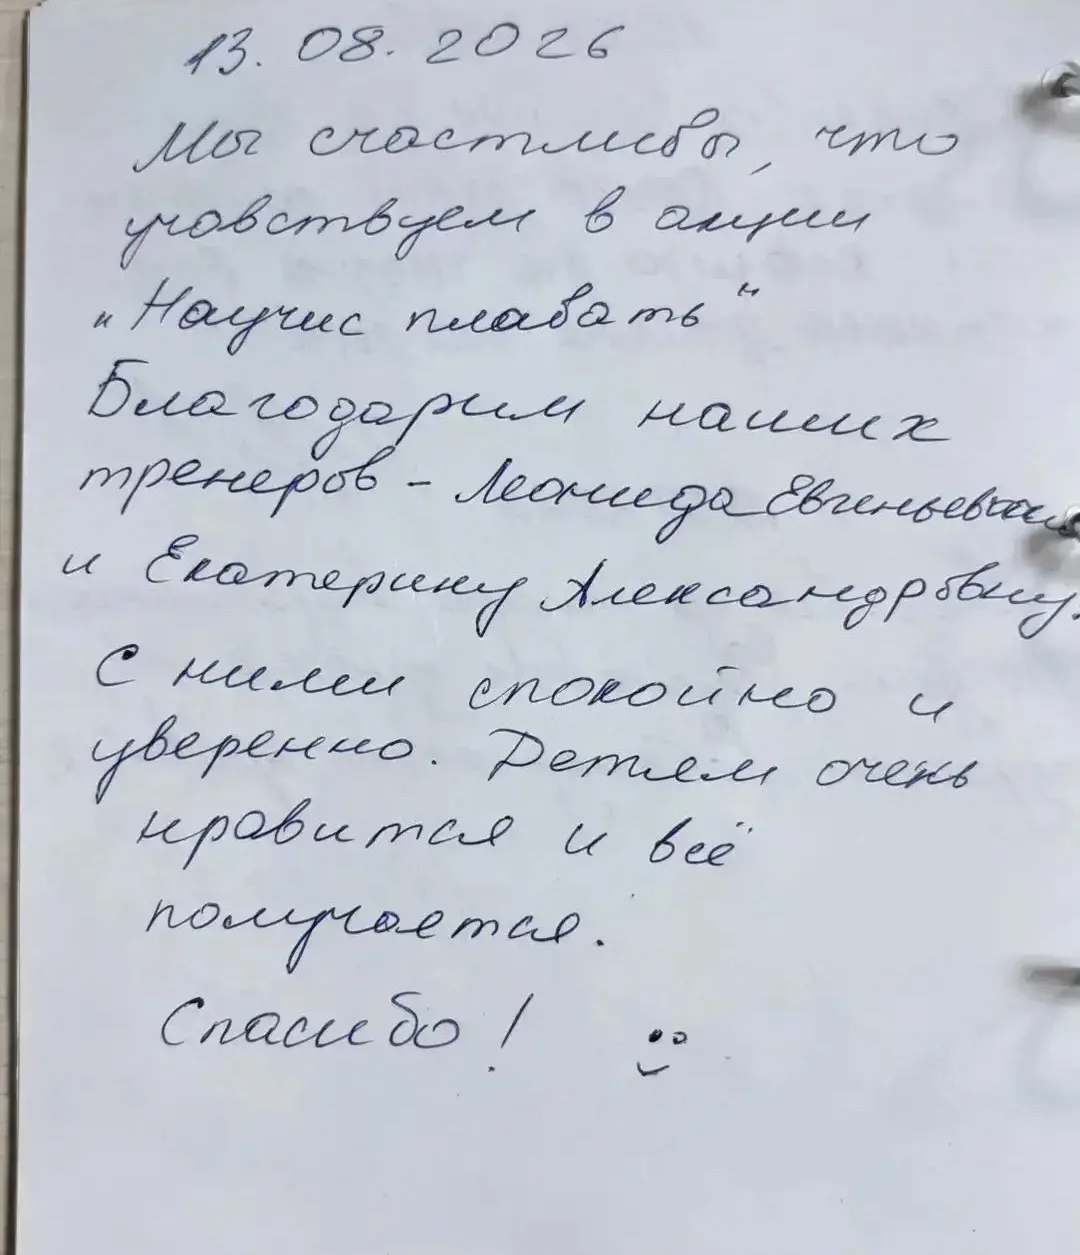 13.08.2026
Мы счастливы, что
учовствуем в акции
„Научис плавать"
Благодарим наших
тренеров - Леонида Евгеньевича
и Екатерину Александровну.
С ними спокойно и
уверенно. Детям очень
нравится и всё
получается.
Спасибо!